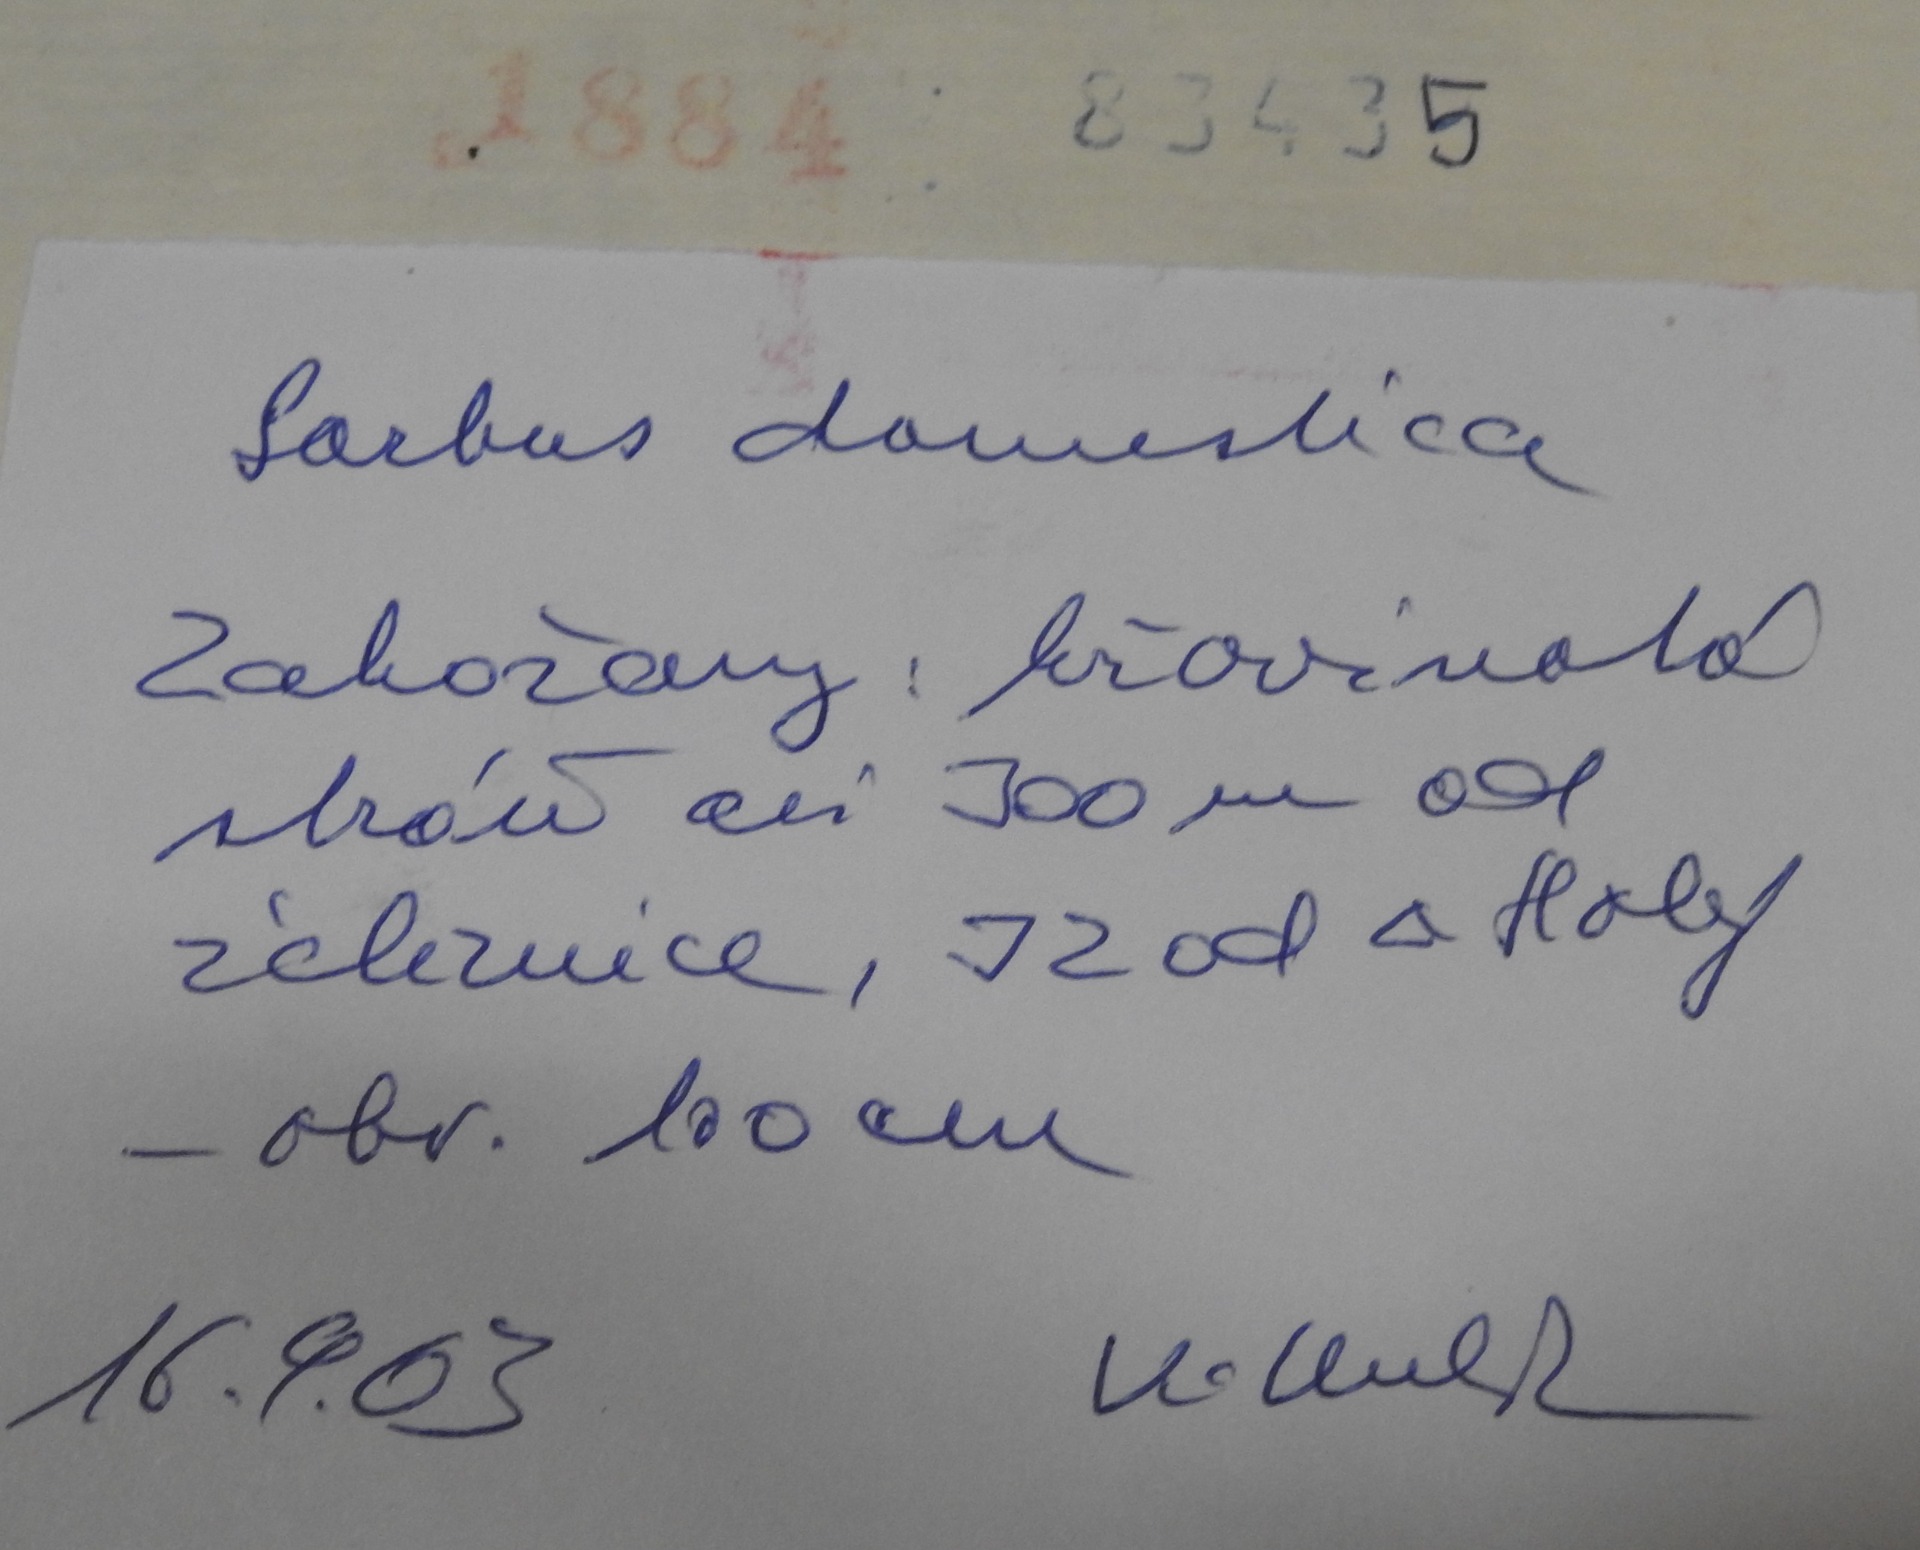 1884 83435
Sorbus domestica
Zahořany: křovinatá
stráň asi 300 m od
železnice, JZ od Δ Holý
– obr. 100 cm
16.9.03